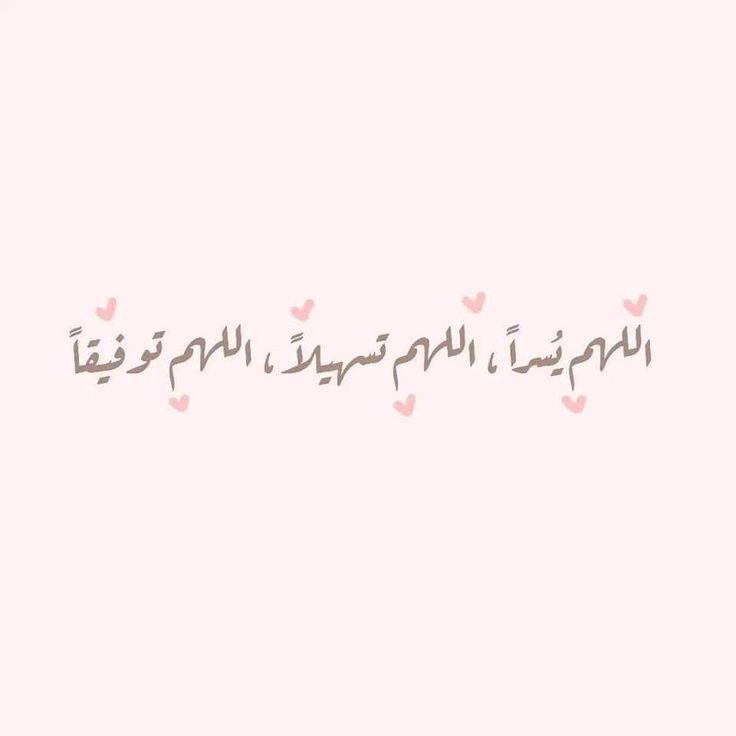 اللهم يُسراً ، اللهم تسهيلاً ، اللهم توفيقاً